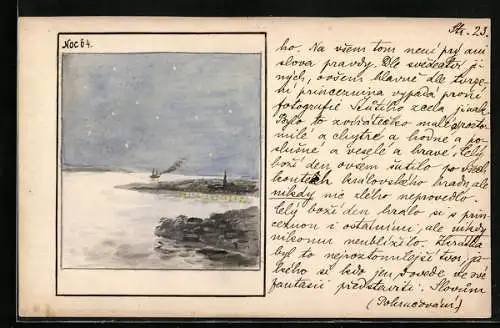 Str. 23.
Noc 64.
ho. Na všem tom není prý ani
slova pravdy. Dle svědectví ji-
ných, ovšem hlavně dle tvrze-
ní princeznina vypadá první
fotografie zcela jinak.
Bylo to zvířátečko malé a rozto-
milé a chytré a hodné a po-
slušné a veselé a hravé. Celý
boží den ovšem šutilo po všech
koutech královského hradu, ale
nikdy nic zlého neprovedlo.
Celý boží den hrálo si s prin-
ceznou i ostatními, ale nikdy
nikomu neublížilo. Zkrátka
byl to nejroztomilejší tvor, ja-
kého si kdo jen dovede ve své
fantasii představiti. Slovům
(Pokračování.)